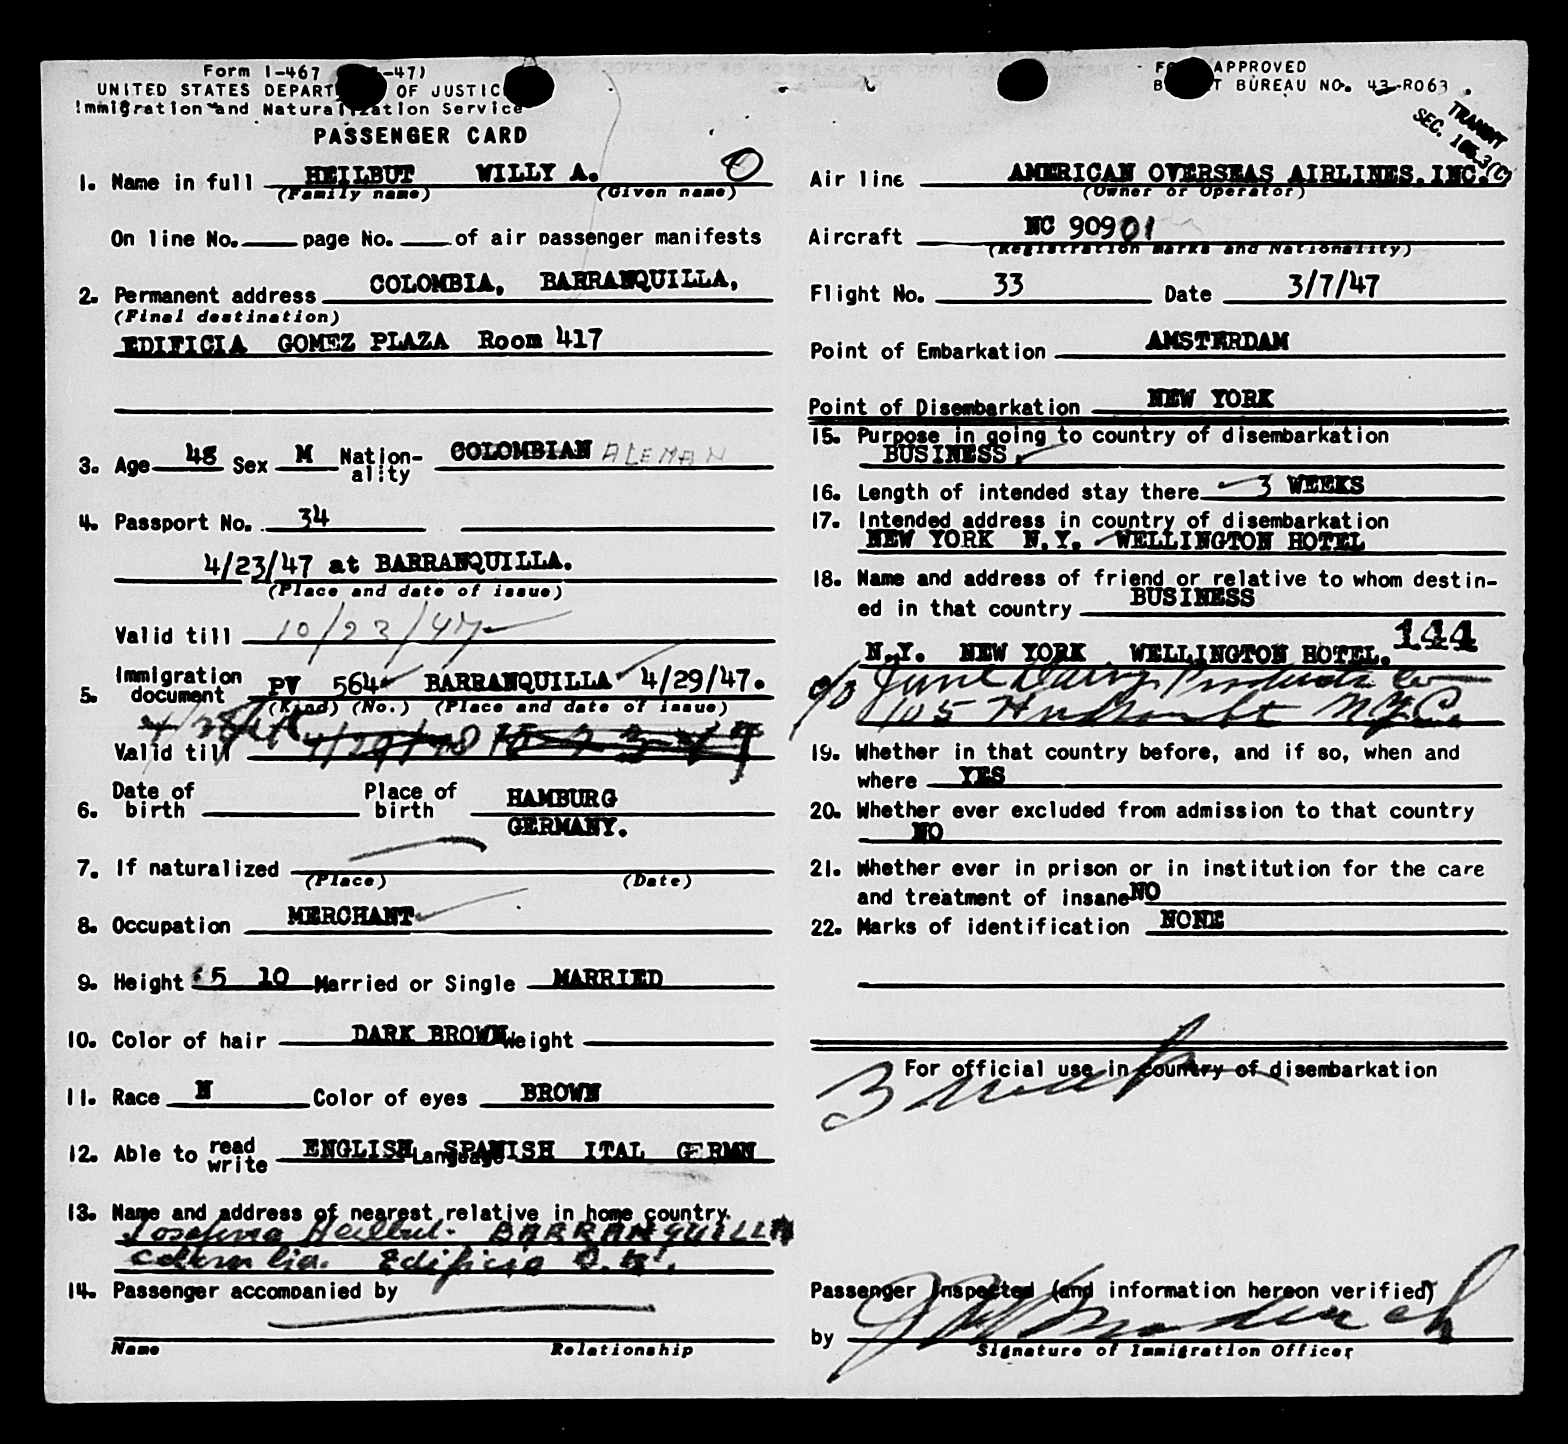 Form I-467 -47)
UNITED STATES DEPART OF JUSTIC
Immigration and Naturalization Service
PASSENGER CARD
1. Name in full HEILBUT WILLY A. O
(Family name) (Given name)
On line No. page No. of air passenger manifests
2. Permanent address COLOMBIA, BARRANQUILLA,
(Final destination)
EDIFICIA GOMEZ PLAZA Room 417
3. Age 48 Sex M Nation-ality COLOMBIAN ALEMAN
4. Passport No. 34
4/23/47 at BARRANQUILLA.
(Place and date of issue)
Valid till 10/23/47
5. Immigration document PV 564 BARRANQUILLA 4/29/47.
(Kind) (No.) (Place and date of issue)
Valid till 4/29/48
6. Date of birth Place of birth HAMBURG
GERMANY.
7. If naturalized
(Place) (Date)
8. Occupation MERCHANT
9. Height 5 10 Married or Single MARRIED
10. Color of hair DARK BROWN Weight
11. Race N Color of eyes BROWN
12. Able to read write ENGLISH Language SPANISH ITAL GERMN
13. Name and address of nearest relative in home country.
Josefina Heilbut. BARRANQUILLA
Colombia. Edificio
14. Passenger accompanied by
Name Relationship
APPROVED
BUREAU NO. 43-R063
TRANSIT
SEC.
Air line AMERICAN OVERSEAS AIRLINES.INC.
(Owner or Operator)
Aircraft NC 90901
(Registration marks and Nationality)
Flight No. 33 Date 3/7/47
Point of Embarkation AMSTERDAM
Point of Disembarkation NEW YORK
15. Purpose in going to country of disembarkation
BUSINESS.
16. Length of intended stay there 3 WEEKS
17. Intended address in country of disembarkation
NEW YORK N.Y. WELLINGTON HOTEL
18. Name and address of friend or relative to whom destin-
ed in that country BUSINESS
144
N.Y. NEW YORK WELLINGTON HOTEL.
c/o Dairy Products Co
105 Hudson St N.Y.C.
19. Whether in that country before, and if so, when and
where YES
20. Whether ever excluded from admission to that country
NO
21. Whether ever in prison or in institution for the care
and treatment of insane NO
22. Marks of identification NONE
For official use in country of disembarkation
3 weeks
Passenger Inspected (and information hereon verified)
by
Signature of Immigration Officer